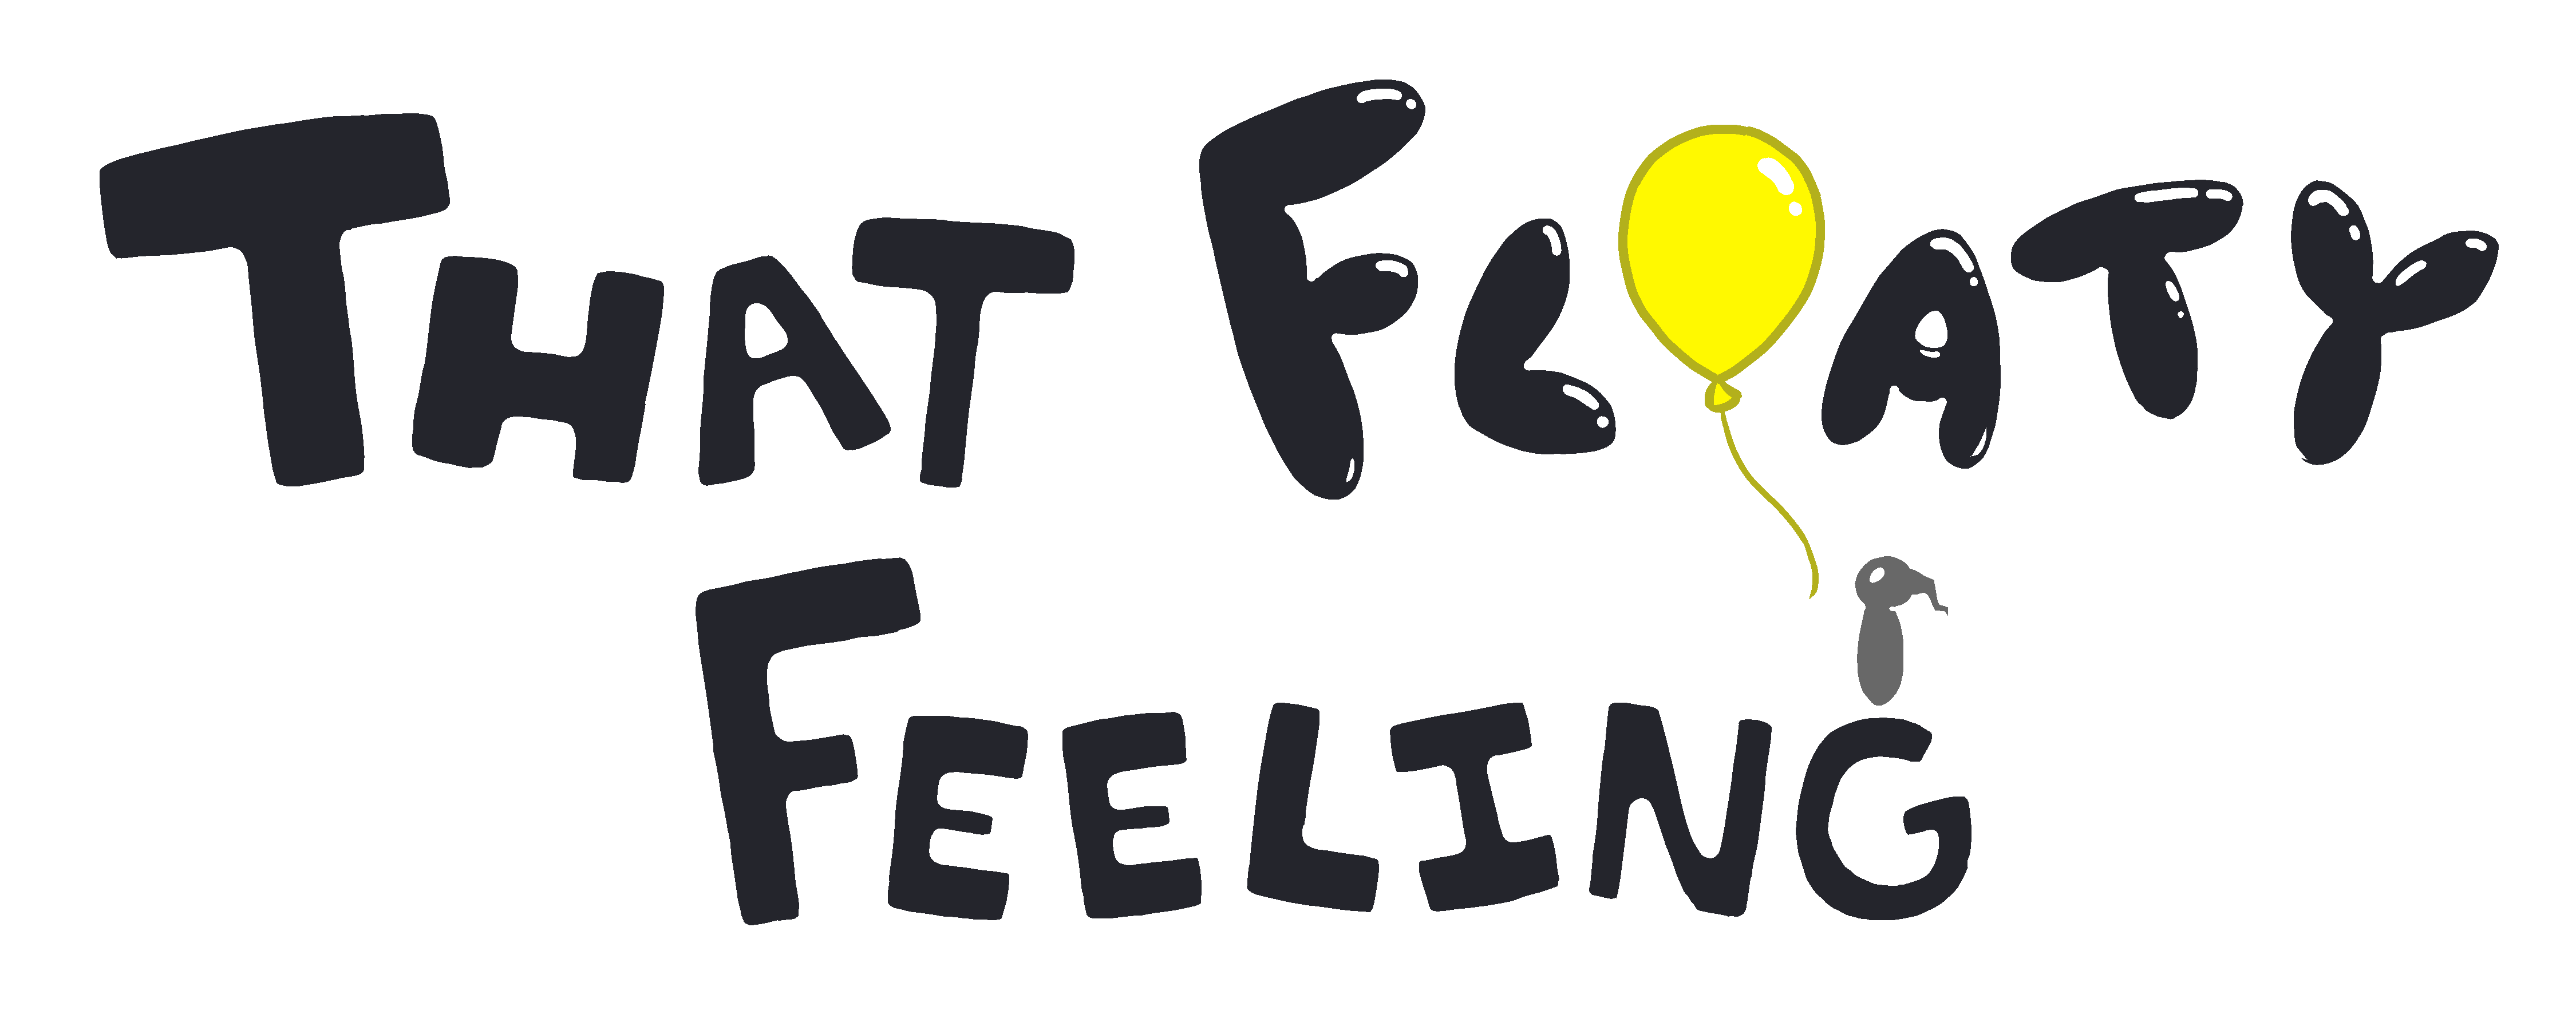 THAT FLOATY
FEELING